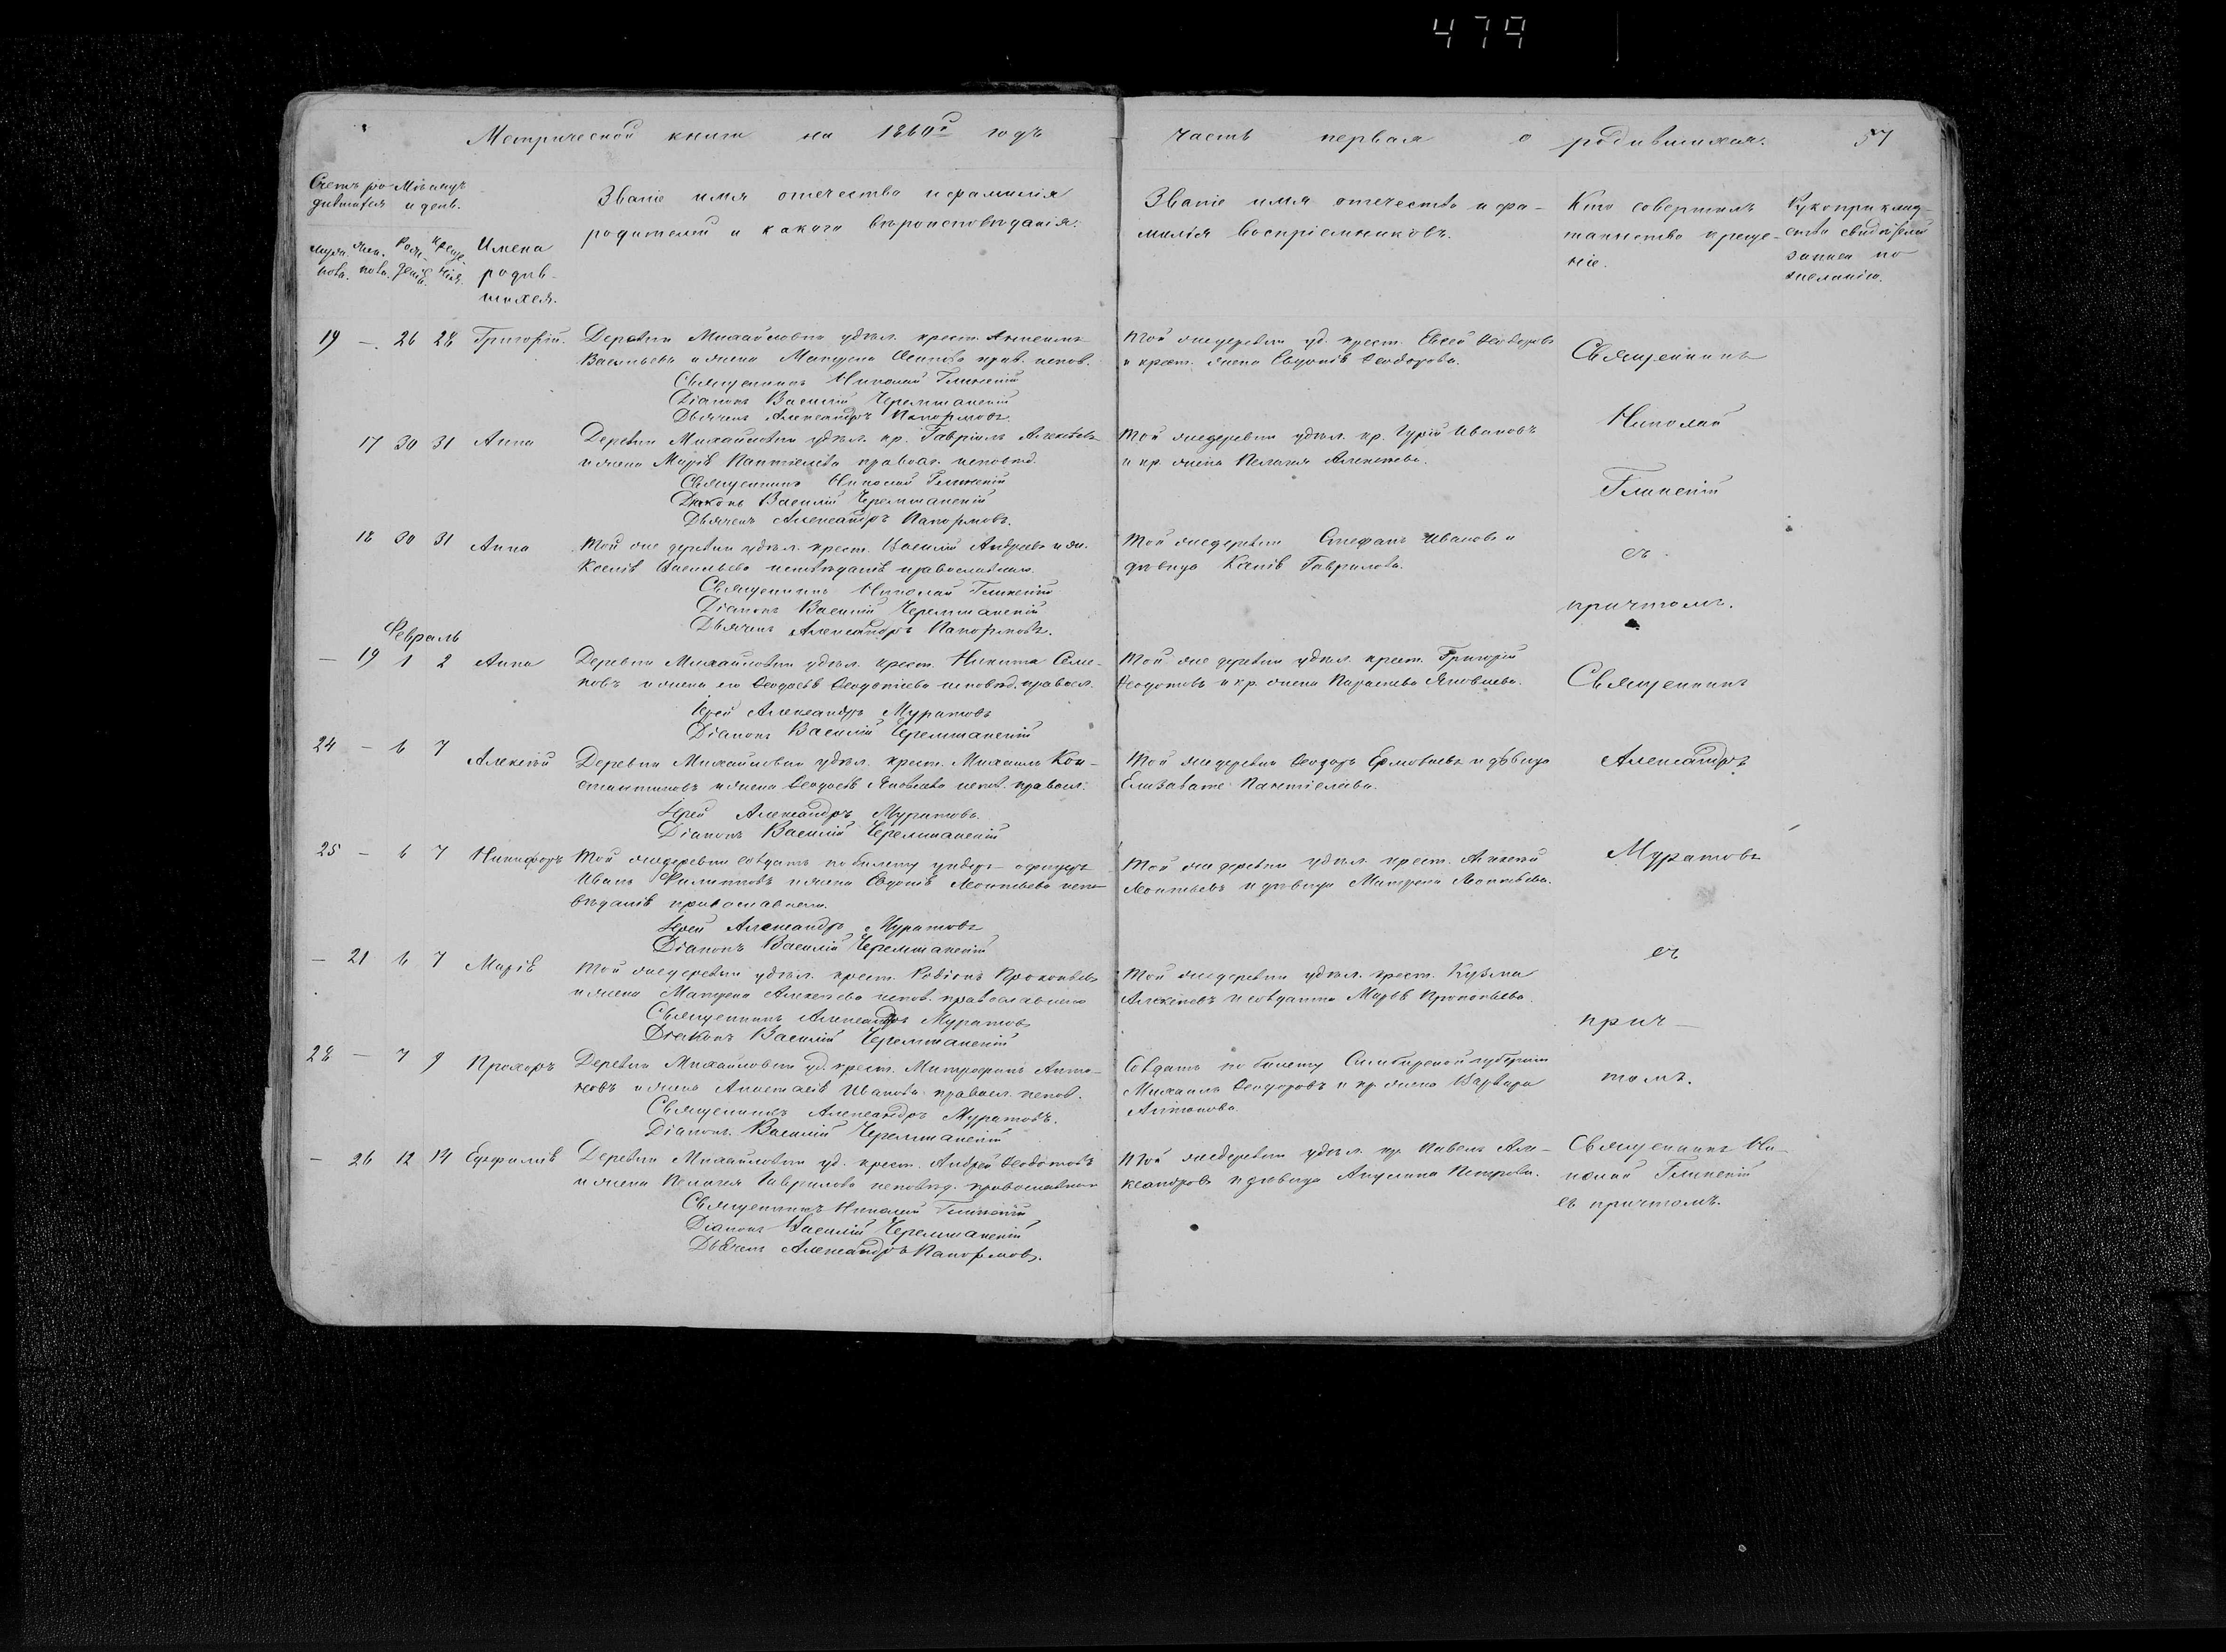 479
Метрической книги на 1860й годъ
часть первая о родившихся.
57
Счетъ ро-
дившихся
Мѣсяцъ
и день.
муж.
пола.
жен.
пола.
Рож-
денія.
Крещ.
нія.
Имена
родив-
шихся.
Званіе имя отечество и фамилія
родителей и какого вѣроисповѣданія.
Званіе имя отечество и фа-
милія воспріемниковъ.
Кто совершилъ
таинство креще-
ніе.
Рукоприклад-
ство свидѣтелей
записи по
желанію.
19 — 26 28 Григорій.
Деревни Михайловки удѣл. крест.
Васильевъ и жена Матрена Осипова прав. испов.
Священникъ Николай Глинскій
Діаконъ Василій Черемшанскій
Дьячекъ Александръ Панормовъ.
Той же деревни уд. крест. Евсей Ѳеодоровъ
и крест. жена Евдокія Ѳеодорова.
Священникъ
Николай
Глинскій
съ
причтомъ.
17 30 31 Анна
Деревни Михайловки удѣл. кр. Гавріилъ Алексѣевъ
и жена Марія Пантелѣева правосл. исповѣд.
Священникъ Николай Глинскій
Діаконъ Василій Черемшанскій
Дьячекъ Александръ Панормовъ.
Той же деревни удѣл. кр. Гурій Ивановъ
и кр. жена Пелагея Алексѣева.
18 30 31 Анна
Той же деревни удѣл. крест. Василій Андреевъ и ж.
Ксенія Васильева исповѣданія православнаго.
Священникъ Николай Глинскій
Діаконъ Василій Черемшанскій
Дьячекъ Александръ Панормовъ.
Той же деревни Стефанъ Ивановъ и
дѣвица Гаврилова.
Февраль
— 19 1 2 Анна
Деревни Михайловки удѣл. крест. Никита Семе-
новъ и жена его Ѳеодосія исповѣд. правосл.
Іерей Александръ Муратовъ
Діаконъ Василій Черемшанскій
Той же деревни удѣл. крест. Григорій
Ѳеодотовъ и кр. жена Параскева Яковлева.
Священникъ
Александръ
Муратовъ
съ
прич-
томъ.
24 — 6 7 Алексѣй
Деревни Михайловки удѣл. крест. Михаилъ Кон-
стантиновъ и жена Ѳеодосія Яковлева испов. правосл.
Іерей Александръ Муратовъ.
Діаконъ Василій Черемшанскій
Той же деревни Ѳеодоръ и дѣвица
Елизавета Пантелѣева.
25 — 6 7 Никифоръ
Той же деревни солдатъ по билету ундеръ-офицеръ
Иванъ Филипповъ и жена Евдокія Леонтьева испо-
вѣданія православнаго.
Іерей Александръ Муратовъ
Діаконъ Василій Черемшанскій
Той же деревни удѣл. крест. Алексѣй
Леонтьевъ и дѣвица Матрена Леонтьева.
— 21 6 7 Марія
Той же деревни удѣл. крест. Родіонъ Прокопьевъ
и жена Матрена Алексѣева испов. православнаго
Священникъ Александръ Муратовъ
Діаконъ Василій Черемшанскій
Той же деревни удѣл. крест. Кузьма
Алексѣевъ и солдатка Марья Прокопьева.
28 — 7 9 Прохоръ
Деревни Михайловки уд. крест. Митрофанъ Анто-
новъ и жена Анастасія Иванова правосл. испов.
Священникъ Александръ Муратовъ.
Діаконъ Василій Черемшанскій
Солдатъ по билету Симбирской губерніи
Михаилъ Ѳеодоровъ и кр. жена Варвара
Антонова.
— 26 12 14 Евфимія
Деревни Михайловки уд. крест. Андрей Ѳеодотовъ
и жена Пелагея Гаврилова исповѣд. православнаго
Священникъ Николай Глинскій
Діаконъ Василій Черемшанскій
Дьячекъ Александръ Панормовъ.
Той же деревни удѣл. кр. Павелъ Але-
ксандровъ и дѣвица Акулина Петрова.
Священникъ Ни-
колай Глинскій
съ причтомъ.